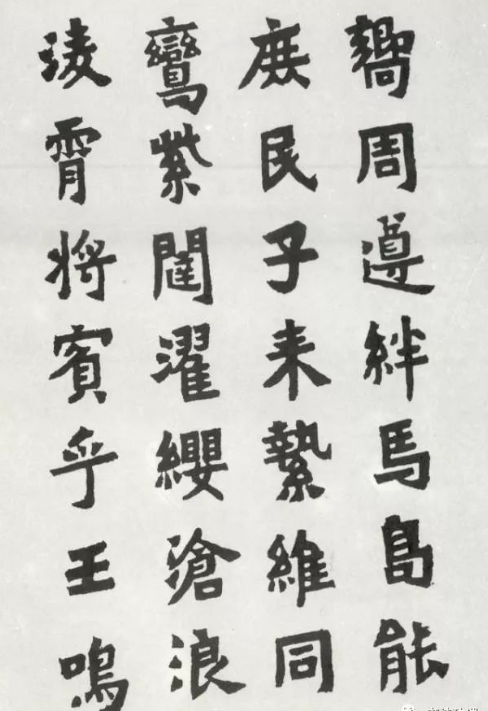 嚮周遵絆馬島能
庶民子来縶維同
鸞紫閨濯纓滄浪
淩霄将賓乎王鳴